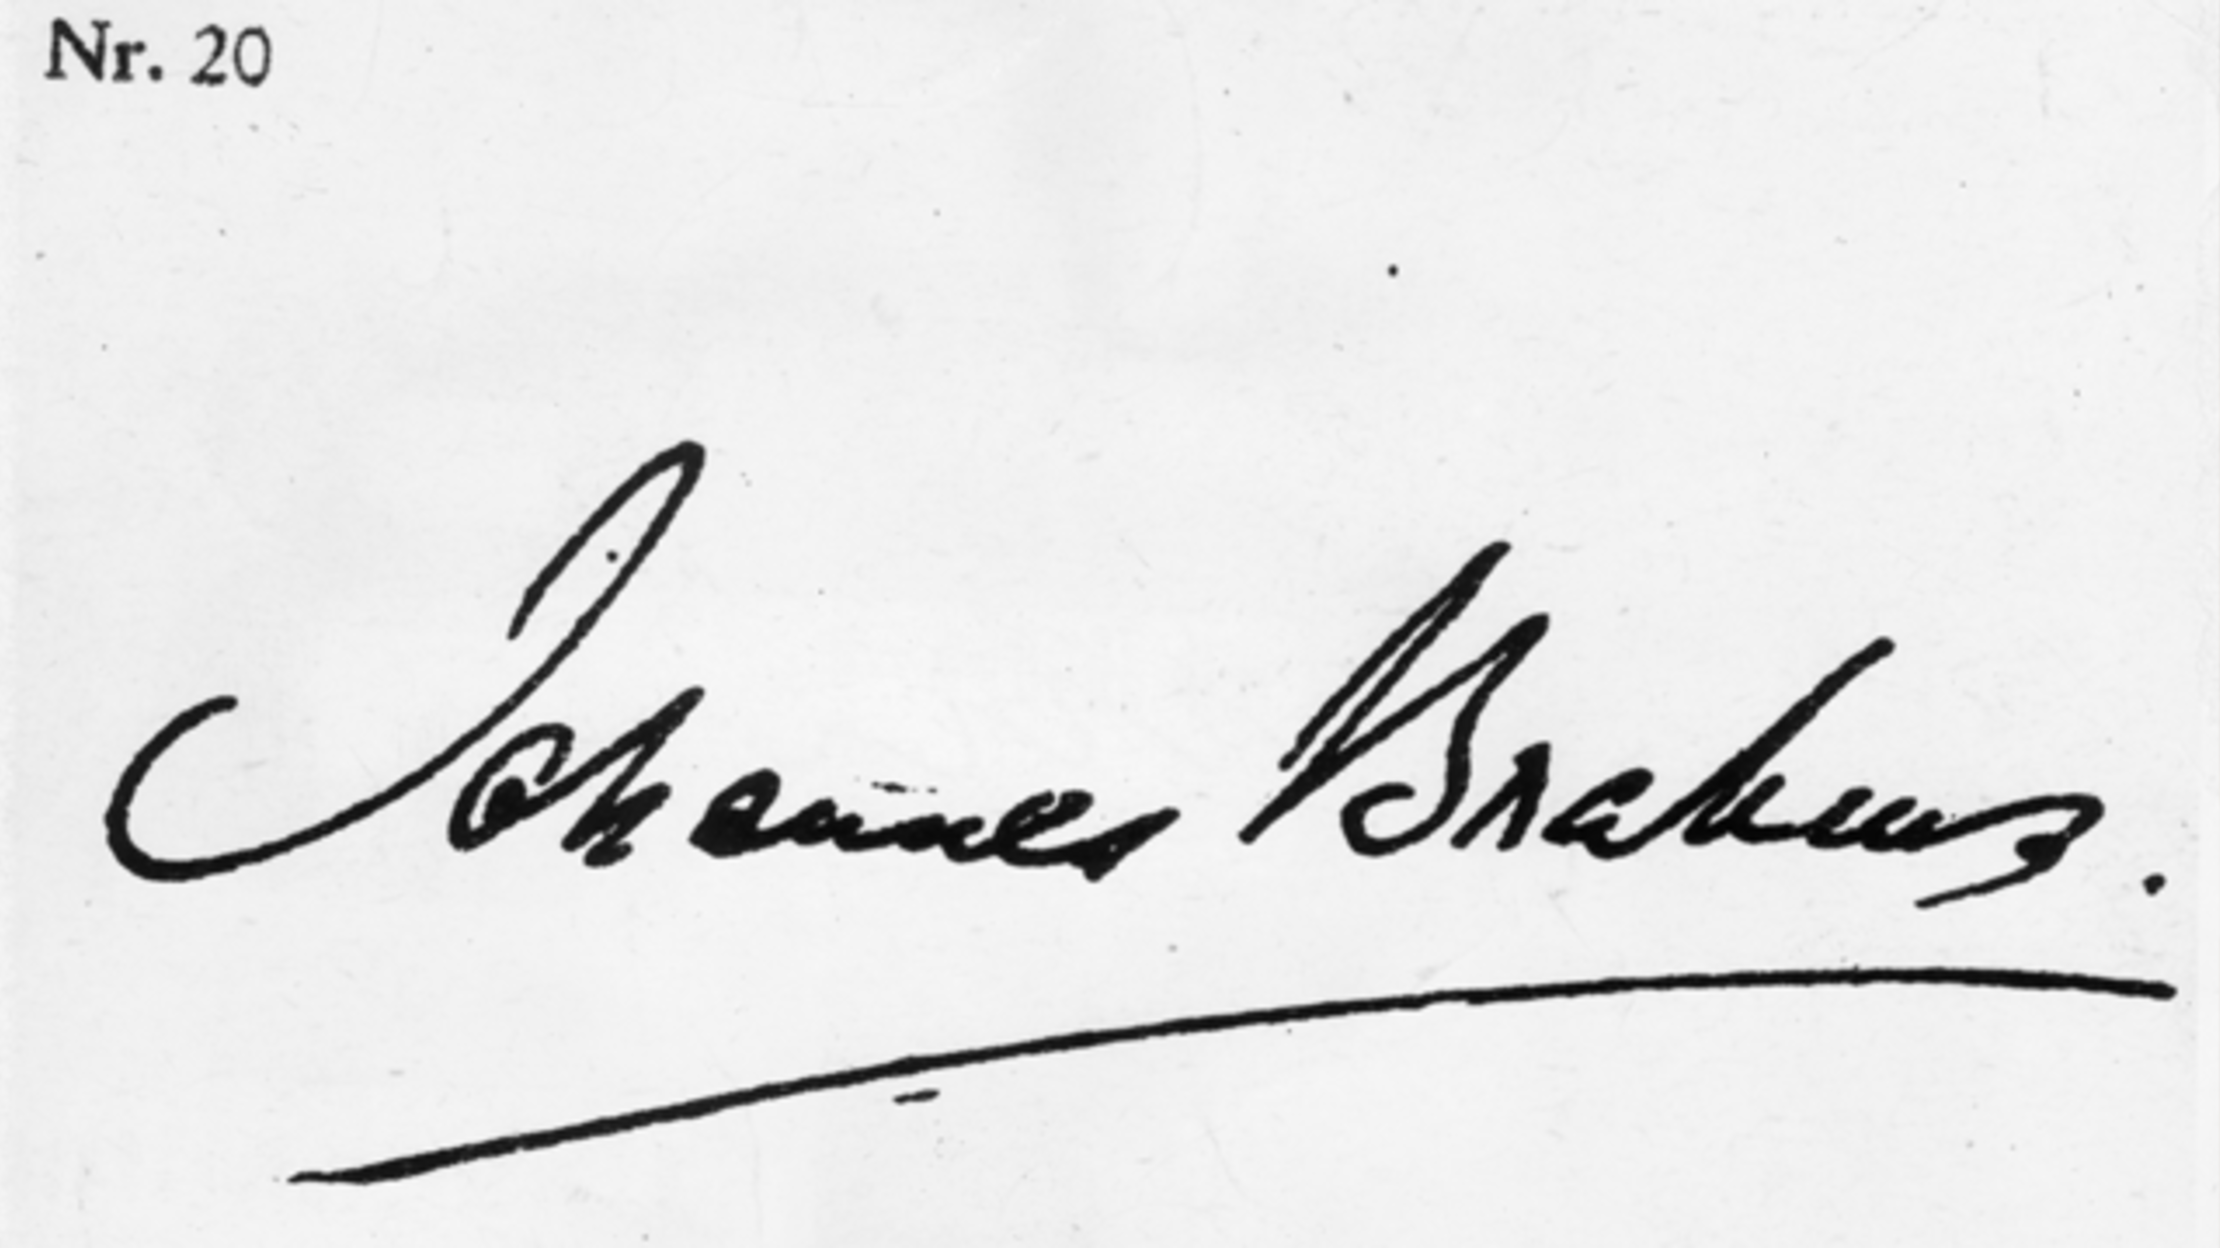 Nr. 20
Johannes Brahms.